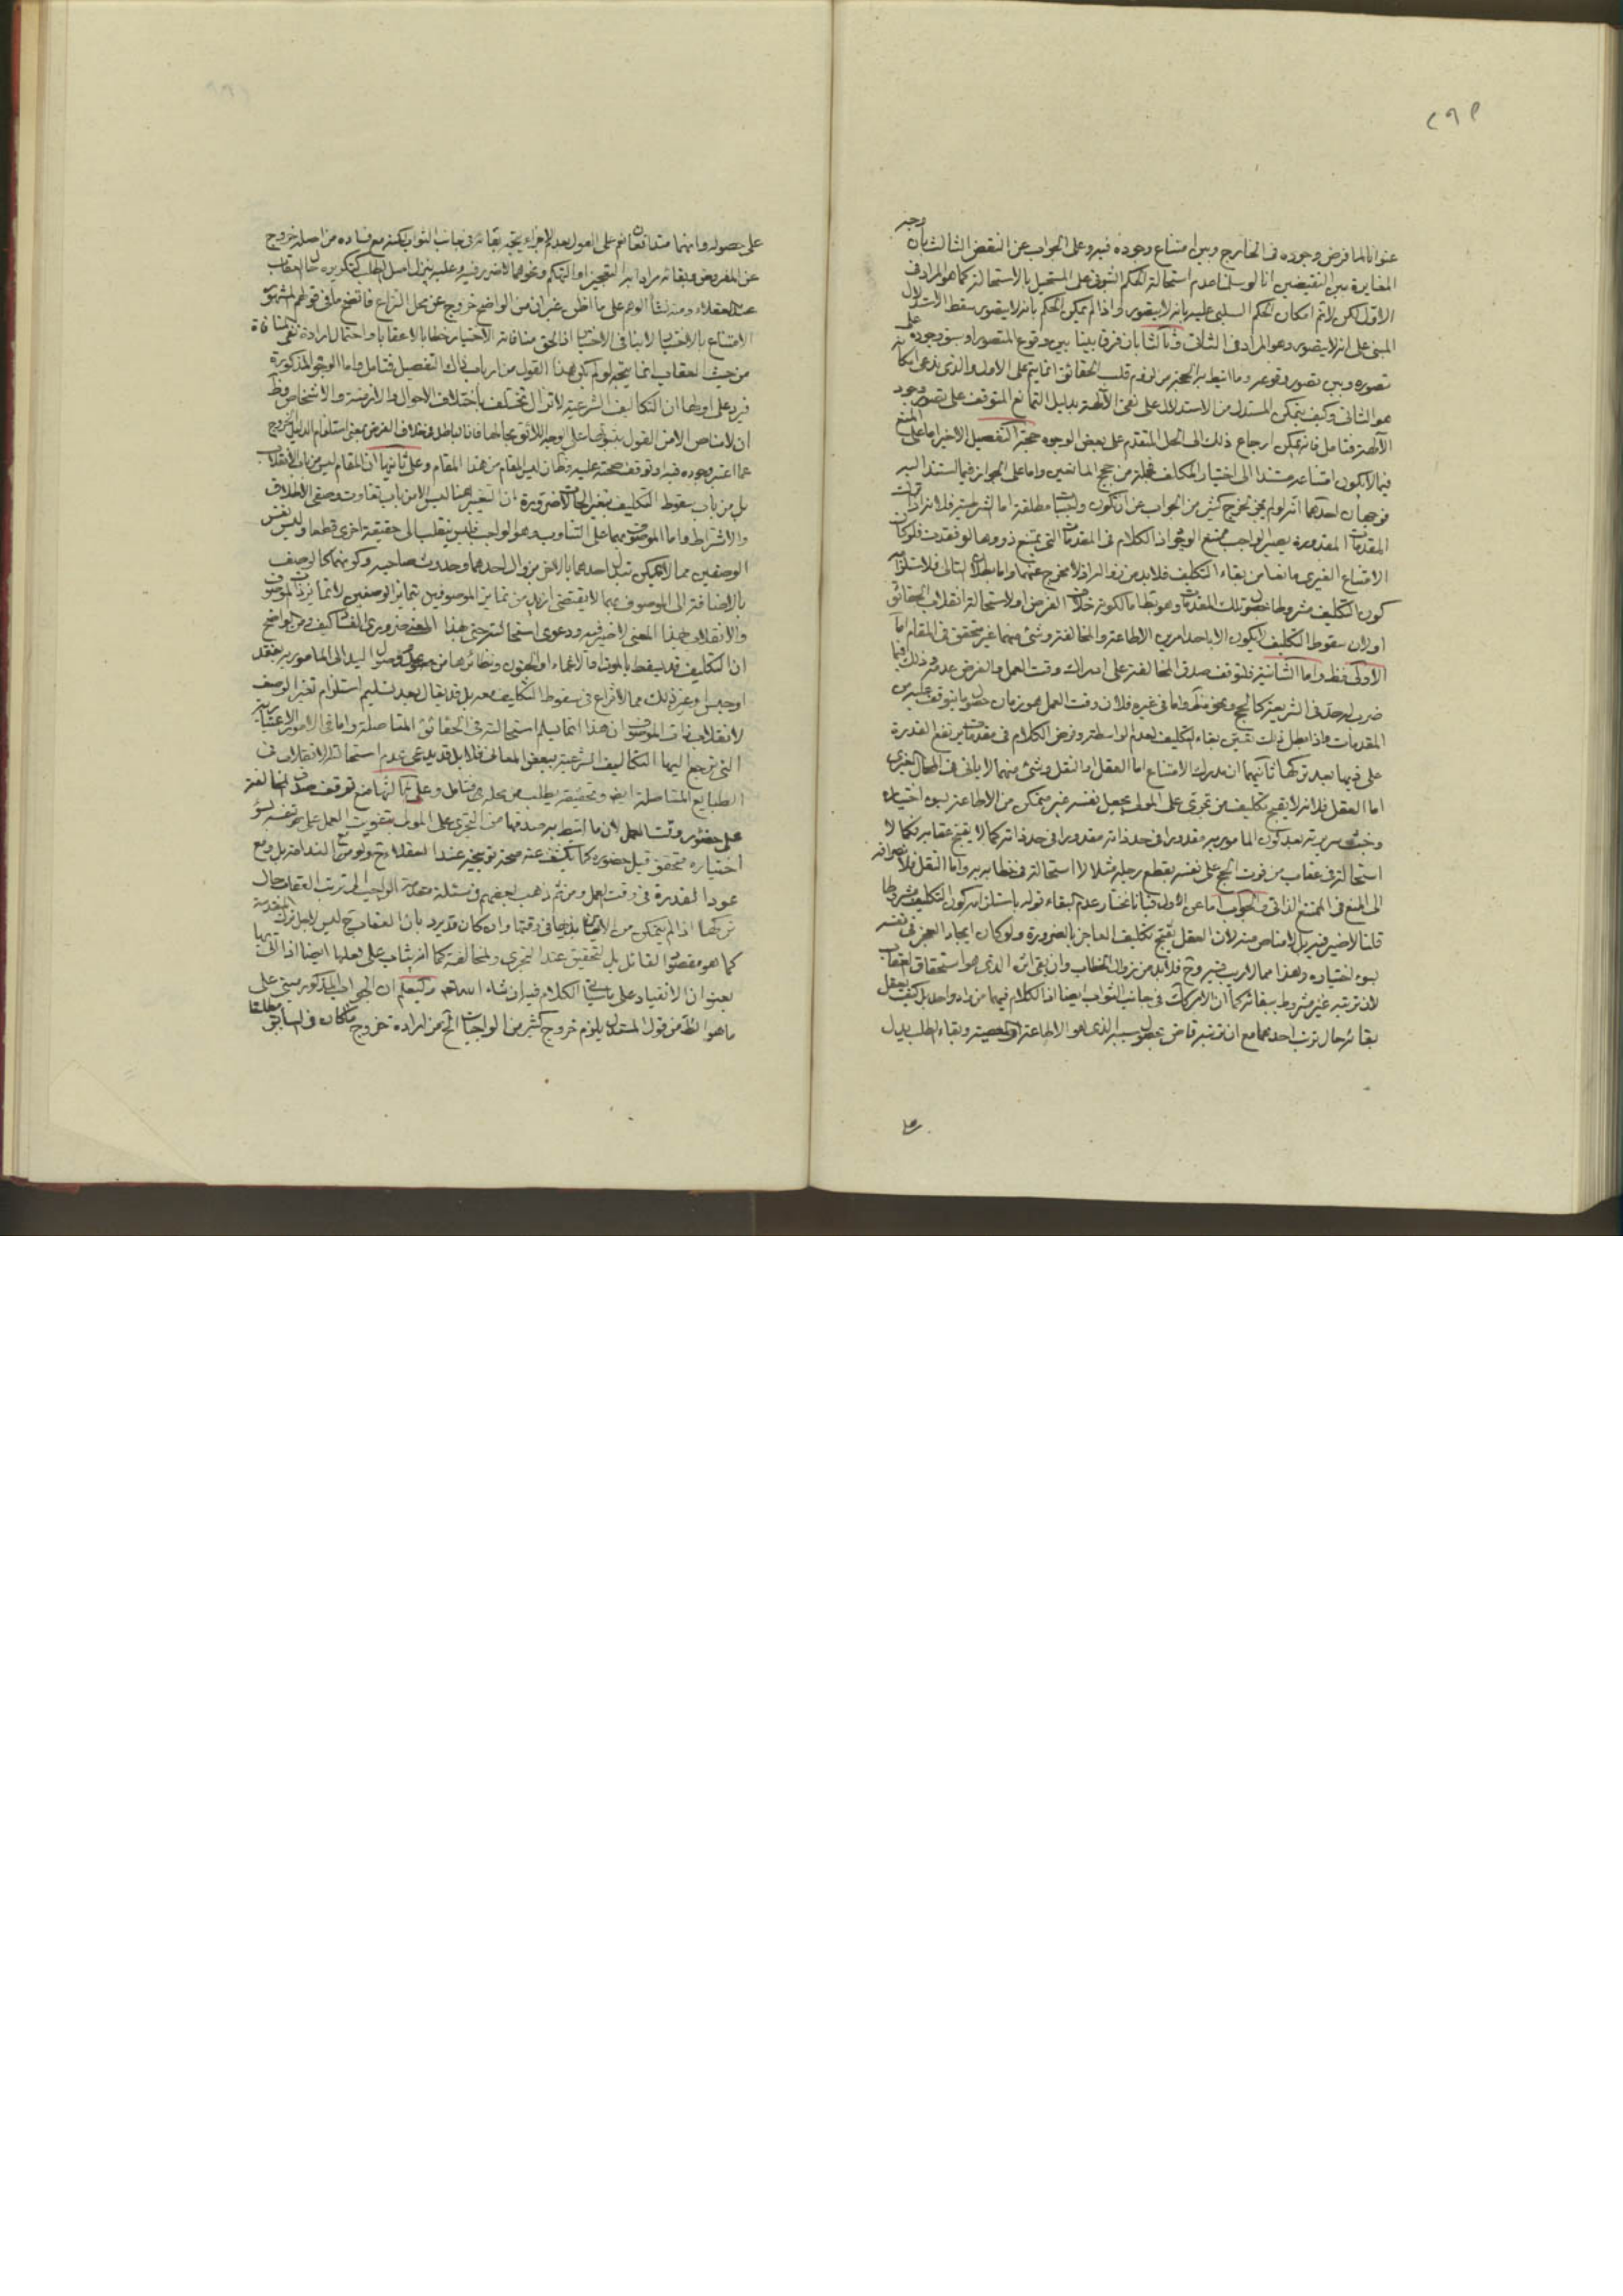 ٢٩٩
عنوانا لما فرض وجوده فى الخارج وبين امتناع وجوده فيه وعلى الجواب عن النقض الثالث بان وجه
المغايرة بين النقيضين انا لو سلمنا عدم استحالة الحكم الثبوتى على المستحيل بالاستحالة كما هو المراد فى
الاول لكن لا تم امكان الحكم السلبى عليه بانه لا يتصور واذا لم يمكن الحكم بانه لا يتصور سقط الاستدلال
المبنى على انه لا يتصور وهو المراد فى الثانى وثالثا بان فرقا بينا بين وقوع المتصور او سبق وجوده على
تصوره وبين تصور وقوعه وما انيط به الحجة من لزوم قلب الحقائق انما يتم على الاول والذى يدعى امكانه
هو الثانى وكيف يتمكن المستدل من الاستدلال على نفى الآلهة بدليل التمانع المتوقف على تصور وجود
الآلهة فتامل فانه يمكن ارجاع ذلك الى الحل المتقدم على بعض الوجوه حجة التفصيل الاخير اما على المنع
فيما لا يكون امتناعه مستندا الى اختيار المكلف فجملة من حجج المانعين واما على الجواز فيما استند اليه
فوجهان احدهما انه لو لم يجز لخرج كثير من الواجب عن ان تكون واجبا مطلقة اما الشرطية فلانه اذا تركت
المقدمات المقدورة يصير الواجب ممتنع الوقوع اذ الكلام فى المقدمات التى يمتنع ذووها لو فقدت فلو كان
الامتناع الغيرى مانعا من بقاء التكليف فلا بد من زواله اذ لا مخرج عنهما واما بطلان التالى فلاستلزامه
كون التكليف مشروطا بحصول تلك المقدمات وهو باطل اما لكونه خلاف الفرض او لاستحالة انقلاب الحقائق
او لان سقوط التكليف لا يكون الا باحد امرين الاطاعة والمخالفة وشئ منهما غير متحقق فى المقام اما
الاولى فظ واما الثانية فلتوقف صدق المخالفة على ادراك وقت العمل والفرض عدمه وذلك فيما
ضرب له حد فى الشريعة كالحج ونحوه ظ واما فى غيره فلان وقت العمل هو زمان حضور ما يتوقف عليه من
المقدمات واذا بطل ذلك تعين بقاء التكليف لعدم الواسطة وفرض الكلام فى مقدمات يرتفع القدرة
على ذيها بعد تركها ثانيهما ان مدرك الامتناع اما العقل او النقل وشئ منهما لا يابى فى المحال الغيرى
اما العقل فلانه لا يقبح تكليف من تجرى على المولى بجعل نفسه غير متمكن من الاطاعة بسوء اختياره
وخبث سريرته بعد كون المامور به مقدورا فى حد ذاته مقدورا فى حد ذاته كما لا يقبح عقابه فكما لا
استحالة فى عقاب من فوت الحج على نفسه بقطع رجله مثلا لا استحالة فى خطابه به واما النقل فلانصرافه
الى المنع فى الممتنع الذاتى والجواب اما عن الاول فبانا نختار عدم البقاء قوله باستلزامه كون التكليف مشروطا
قلنا لا ضير فيه بل لا مناص منه لان العقل يقبح تكليف العاجز بالضرورة ولو كان ايجاد العجز فى نفسه
بسوء اختياره وهذا مما لا ريب فيه وح فلا بد من زوال الخطاب وان بقى اثره الذى هو استحقاق العقاب
لان ترتبه غير مشروط ببقائه كما ان الامر كك فى جانب الثواب ايضا اذ الكلام فيهما من واد واحد بل كيف يعقل
بقائه حال ترتب احدهما مع ان ترتبه قاض بحصول سببه الذى هو الاطاعة او المعصية وبقاء الطلب يدل
على
على حصوله وانهما متدافعان نعم على القول بعدم الاجزاء يتجه بقائه فى جانب الثواب لكنه مع فساده من اصله خروج
عن المفروض وبقائه مرادا به التعجيز او التهكم ونحوهما لا ضير فيه وعليه ينزل اصل الطلب كتكريره حال العقاب
عند العقلاء ومنه نشأ الوهم على ما اظن غير ان من الواضح خروجه عن محل النزاع فاتضح ما فى قولهم المشهور
الامتناع بالاختيار لا ينافى الاختيار اذ الحق منافاته الاختيار خطابا لا عقابا واحتمال ارادة نفى المنافاة
من حيث العقاب انما يتجه لو لم يكن هذا القول من ارباب ذلك التفصيل فتامل واما الوجوه المذكورة
فيرد على اولها ان التكاليف الشرعية لا تزال تختلف باختلاف الاحوال والازمنة والاشخاص وظ
ان لا مناص الا من القول بثبوتها على الوجه اللائق بحالها فاذا الباطل هو خلاف الفرض بمعنى استلزام الدليل الخروج
عما اعتبر وجوده فيه او توقف صحته عليه وظ ان ليس المقام من هذا المقام وعلى ثانيها ان المقام ليس من باب الانقلاب
بل من باب سقوط التكليف بتغير الحالات ضرورة ان التغير هنا ليس الا من باب تفاوت وصفى الاطلاق
والاشتراط واما الموصوف بهما على التناوب وهو الواجب فليس ينقلب الى حقيقة اخرى قطعا وليس نفس
الوصفين مما لا يمكن تبدل احدهما بالاخر من زوال احدهما وحدوث صاحبه وكونهما كالوصف
بالاضافة الى الموصوف بهما لا يقتضى ازيد من تمايز الموصوفين بتمايز الوصفين لا تمايز ذات الموصوف
والانقلاب بهذا المعنى لا ضير فيه ودعوى استحالته حتى هذا المعنى ضرورى الفساد كيف ومن الواضح
ان التكليف قد يسقط بالموت او الاغماء او الجنون ونظائرها من عدم وصول اليد الى المامور به بفقد
او حبس او غير ذلك مما لا نزاع فى سقوط التكليف معه بل قد يقال بعد تسليم استلزام تغير الوصف
لانقلاب ذات الموصوف ان هذا انما يسلم استحالته فى الحقائق المتاصلة واما فى الامور الاعتبارية
التى ترجع اليها التكاليف الشرعية ببعض المعانى فلا بل قد يدعى عدم استحالة الانقلاب فى
الطبايع المتاصلة ايض وتحقيقه يطلب من محله فتامل وعلى ثالثها منع توقف صدق المخالفة
على حضور وقت العمل لان ما انيط به صدقها من التجرى على المولى بتفويت العمل على نفسه بسوء
اختياره متحقق قبل حضوره كما يكشف عنه صحة توبيخه عند العقلاء ح ولو مع الندامة بل ومع
عود القدرة فى وقت العمل ومن ثم ذهب بعضهم فى مسئلة مقدمة الواجب الى ترتب العقاب حال
تركها اذا لم يتمكن من الاتيان بذيها فى وقتها وان كان قد يرد بان العقاب ح ليس لاجل ترك المقدمة
كما هو مقصود القائل بل لتحقيق عند التجرى والمخالفة كما انه يثاب على فعلها ايضا اذا اتى بها
بعنوان الانقياد على ما سياتى الكلام فيه ان شاء الله تعالى وليعلم ان الجواب المذكور مبنى على
ما هو الظ من قول المستدل يلزم خروج كثير من الواجبات الخ من ارادة خروج ما كان فى السابق مطلقا